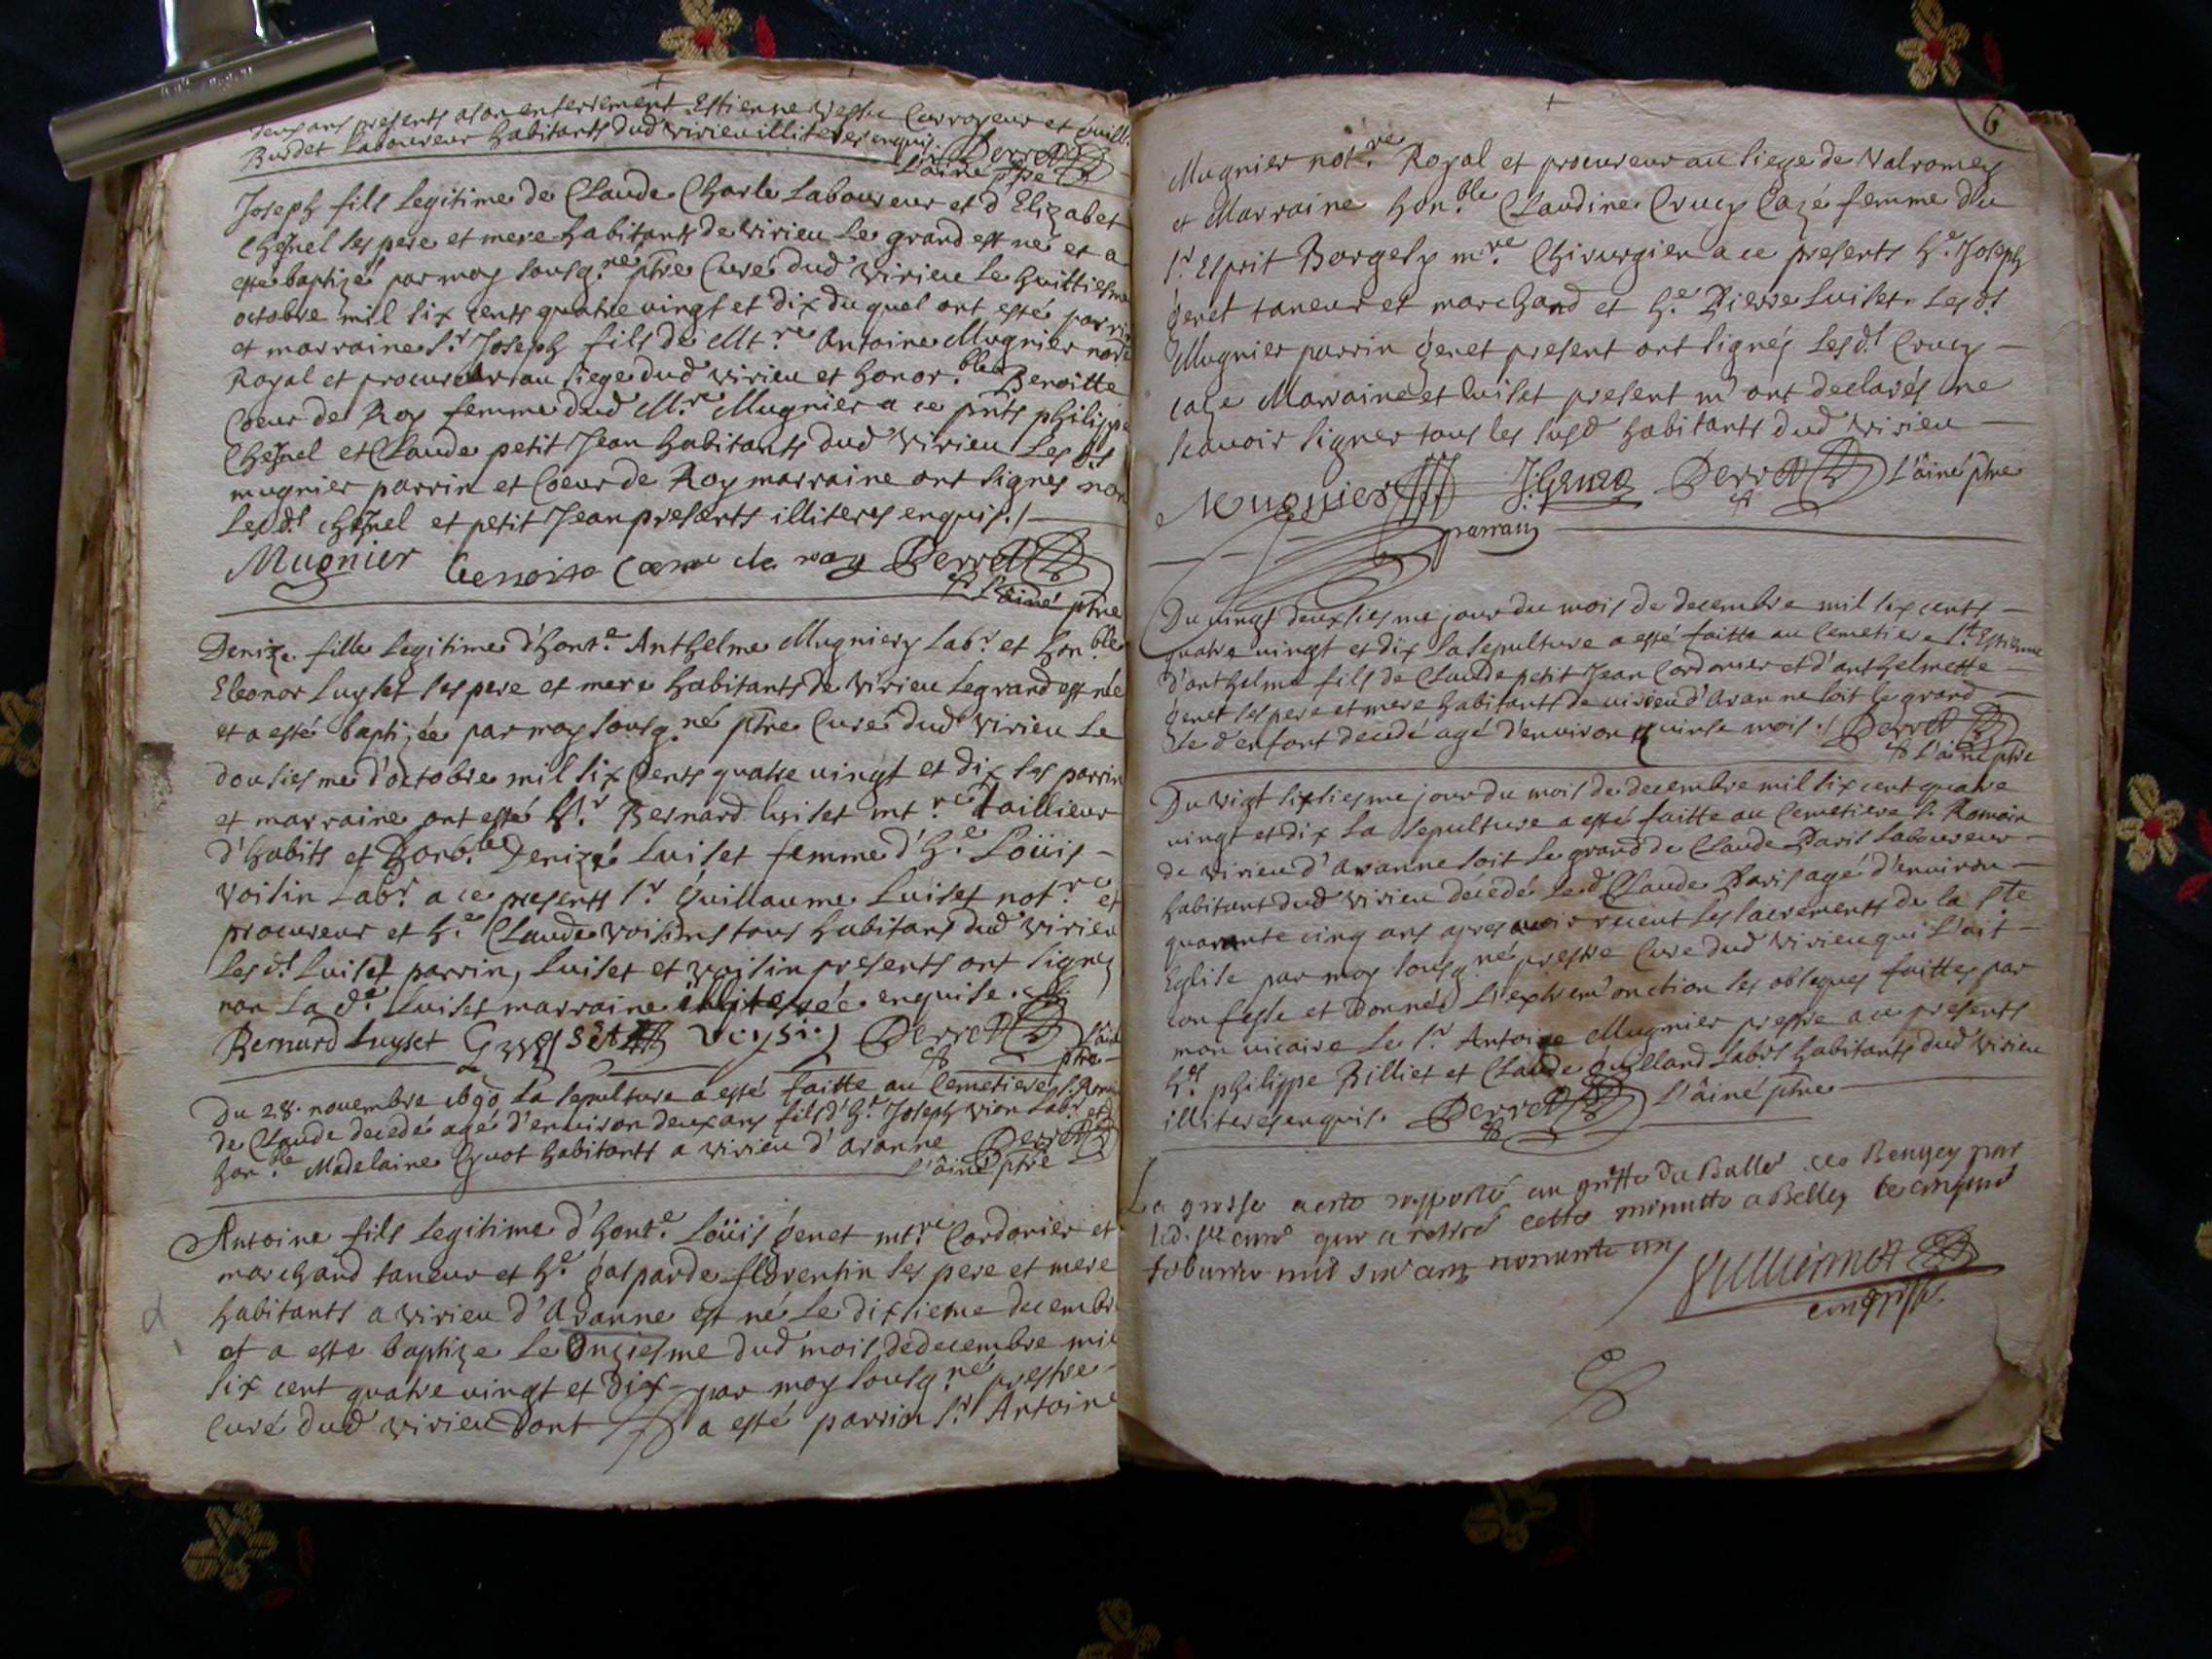 deux ans presents a son enterrement Estienne Corroyeur et Guill.
Burdet Laboureur habitants dud virieu illiteres enquis. Perret
L'ainé ptre
Joseph fils legitime de Claude Charle Laboureur et d'Elizabet
Chesnel ses pere et mere habitants de virieu Le grand est né et a
esté baptizé par moy sousg.né ptre Curé dud virieu Le huittiesme
octobre mil six cents quatre vingt et dix duquel ont esté parrin
et marraine S.r Joseph fils de Mt.re Antoine Mugnier
Royal et procureur au siege dud virieu et honor.ble Benoitte
Coeur de Roy femme dud M.re Mugnier a ce pnts philippe
Chesnel et Claude petit Jean habitants dud virieu Les ds
mugnier parrin et Coeur de Roy marraine ont signes non
Lesd.s chesnel et petit Jean presents illiteres enquis./
Mugnier benoite Coeur de roy Perret
L'ainé ptre
Denize fille legitime d'hont.e Anthelme Mugniery lab.r et hon.ble
Eleonor Luyset ses pere et mere habitants de virieu Le grand est née
et a esté baptizée par moy sousg.né ptre Curé dud virieu Le
dousiesme d'octobre mil six Cents quatre vingt et dix ses parrin
et marraine ont esté S.r Bernard luiset mt.re taillieur
d'habits et honb.le Denize Luiset femme d'h.e Loüis
voisin Lab.r a ce presents S.r Guillaume Luiset not.re et
procureur et h.e Claude voisin tous habitans dud virieu
Lesd.s Luiset parrin, Luiset et voisin presents ont signes
non La d.e Luiset marraine illiterée enquise.
Bernard Luyset Perret L'ainé
ptre
Du 28. novembre 1690 La sepulture a esté faitte au Cemetiere S. Romain
de Claude decedé agé d'environ deux ans fils d'h.e Joseph vion Lab.r et
hon.ble Madelaine habitants a virieu d'avanne Perret
L'ainé ptre
Antoine fils legitime d'hont.e Loüis Genet mt.re Cordonier et
marchand taneur et h.e gasparde florentin ses pere et mere
habitants a virieu d'avanne est né Le dixsieme decembre
et a esté baptize Le onziesme dud mois de decembre mil
six cent quatre vingt et dix par moy sousg.né prestre
Curé dud virieu dont a esté parrin S.r Antoine
6
Mugnier not.re Royal et procureur au siege de Valromey
et Marraine hon.ble Claudine Cruey Cazé femme du
S.r Esprit Borgesy m.re Chirurgien a ce presents h.e Joseph
Genet taneur et marchand et h.e Pierre Luiset Lesd.s
Mugnier parrin Genet present ont signés Lesd.s Cruey
caze Marraine et Luiset present m'ont declarés ne
scavoir signer tous les susd habitants dud virieu
Mugnier J. Genet Perret L'ainé ptre
parrain
Du vingt deuxsiesme jour du mois de decembre mil six cents
quatre vingt et dix La sepulture a esté faitte au Cemetiere S.t Estienne
d'anthelme fils de Claude petit Jean Cordonier et d'anthelmette
Genet ses pere et mere habitants de virieu d'avanne soit le grand
Le d enfant decedé agé d'environ quinse mois./ Perret
L'ainé ptre
Du vigt sixsiesme jour du mois de decembre mil six cent quatre
vingt et dix La sepulture a esté faitte au Cemetiere S. Romain
de virieu d'avanne soit Le grand de Claude Paris Laboureur
habitant dud virieu decedé Led Claude Paris agé d'environ
quarante cinq ans apres avoir receut les sacrements de la S.te
Eglise par moy sousg.né prestre Curé dud virieu qui L'ait
confesse et donnéd L'extrem'onction ses obseques faittes par
mon vicaire Le S.r Antoine Mugnier prestre a ce presents
h.es philippe Billiet et Claude Guilland lab.rs habitants dud virieu
illiteres enquis. Perret L'ainé ptre
La grosse a esté rapporté au greffe du Balliage de Beugey par
led. sr curé qui a retiré cette minutte a Belley le cinquie
feburier mil six cent nonante un